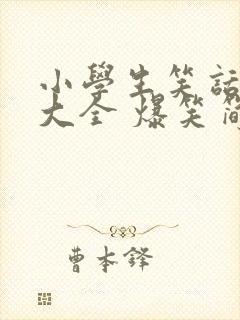 小學生笑話
大全 爆笑簡
曹本鋒